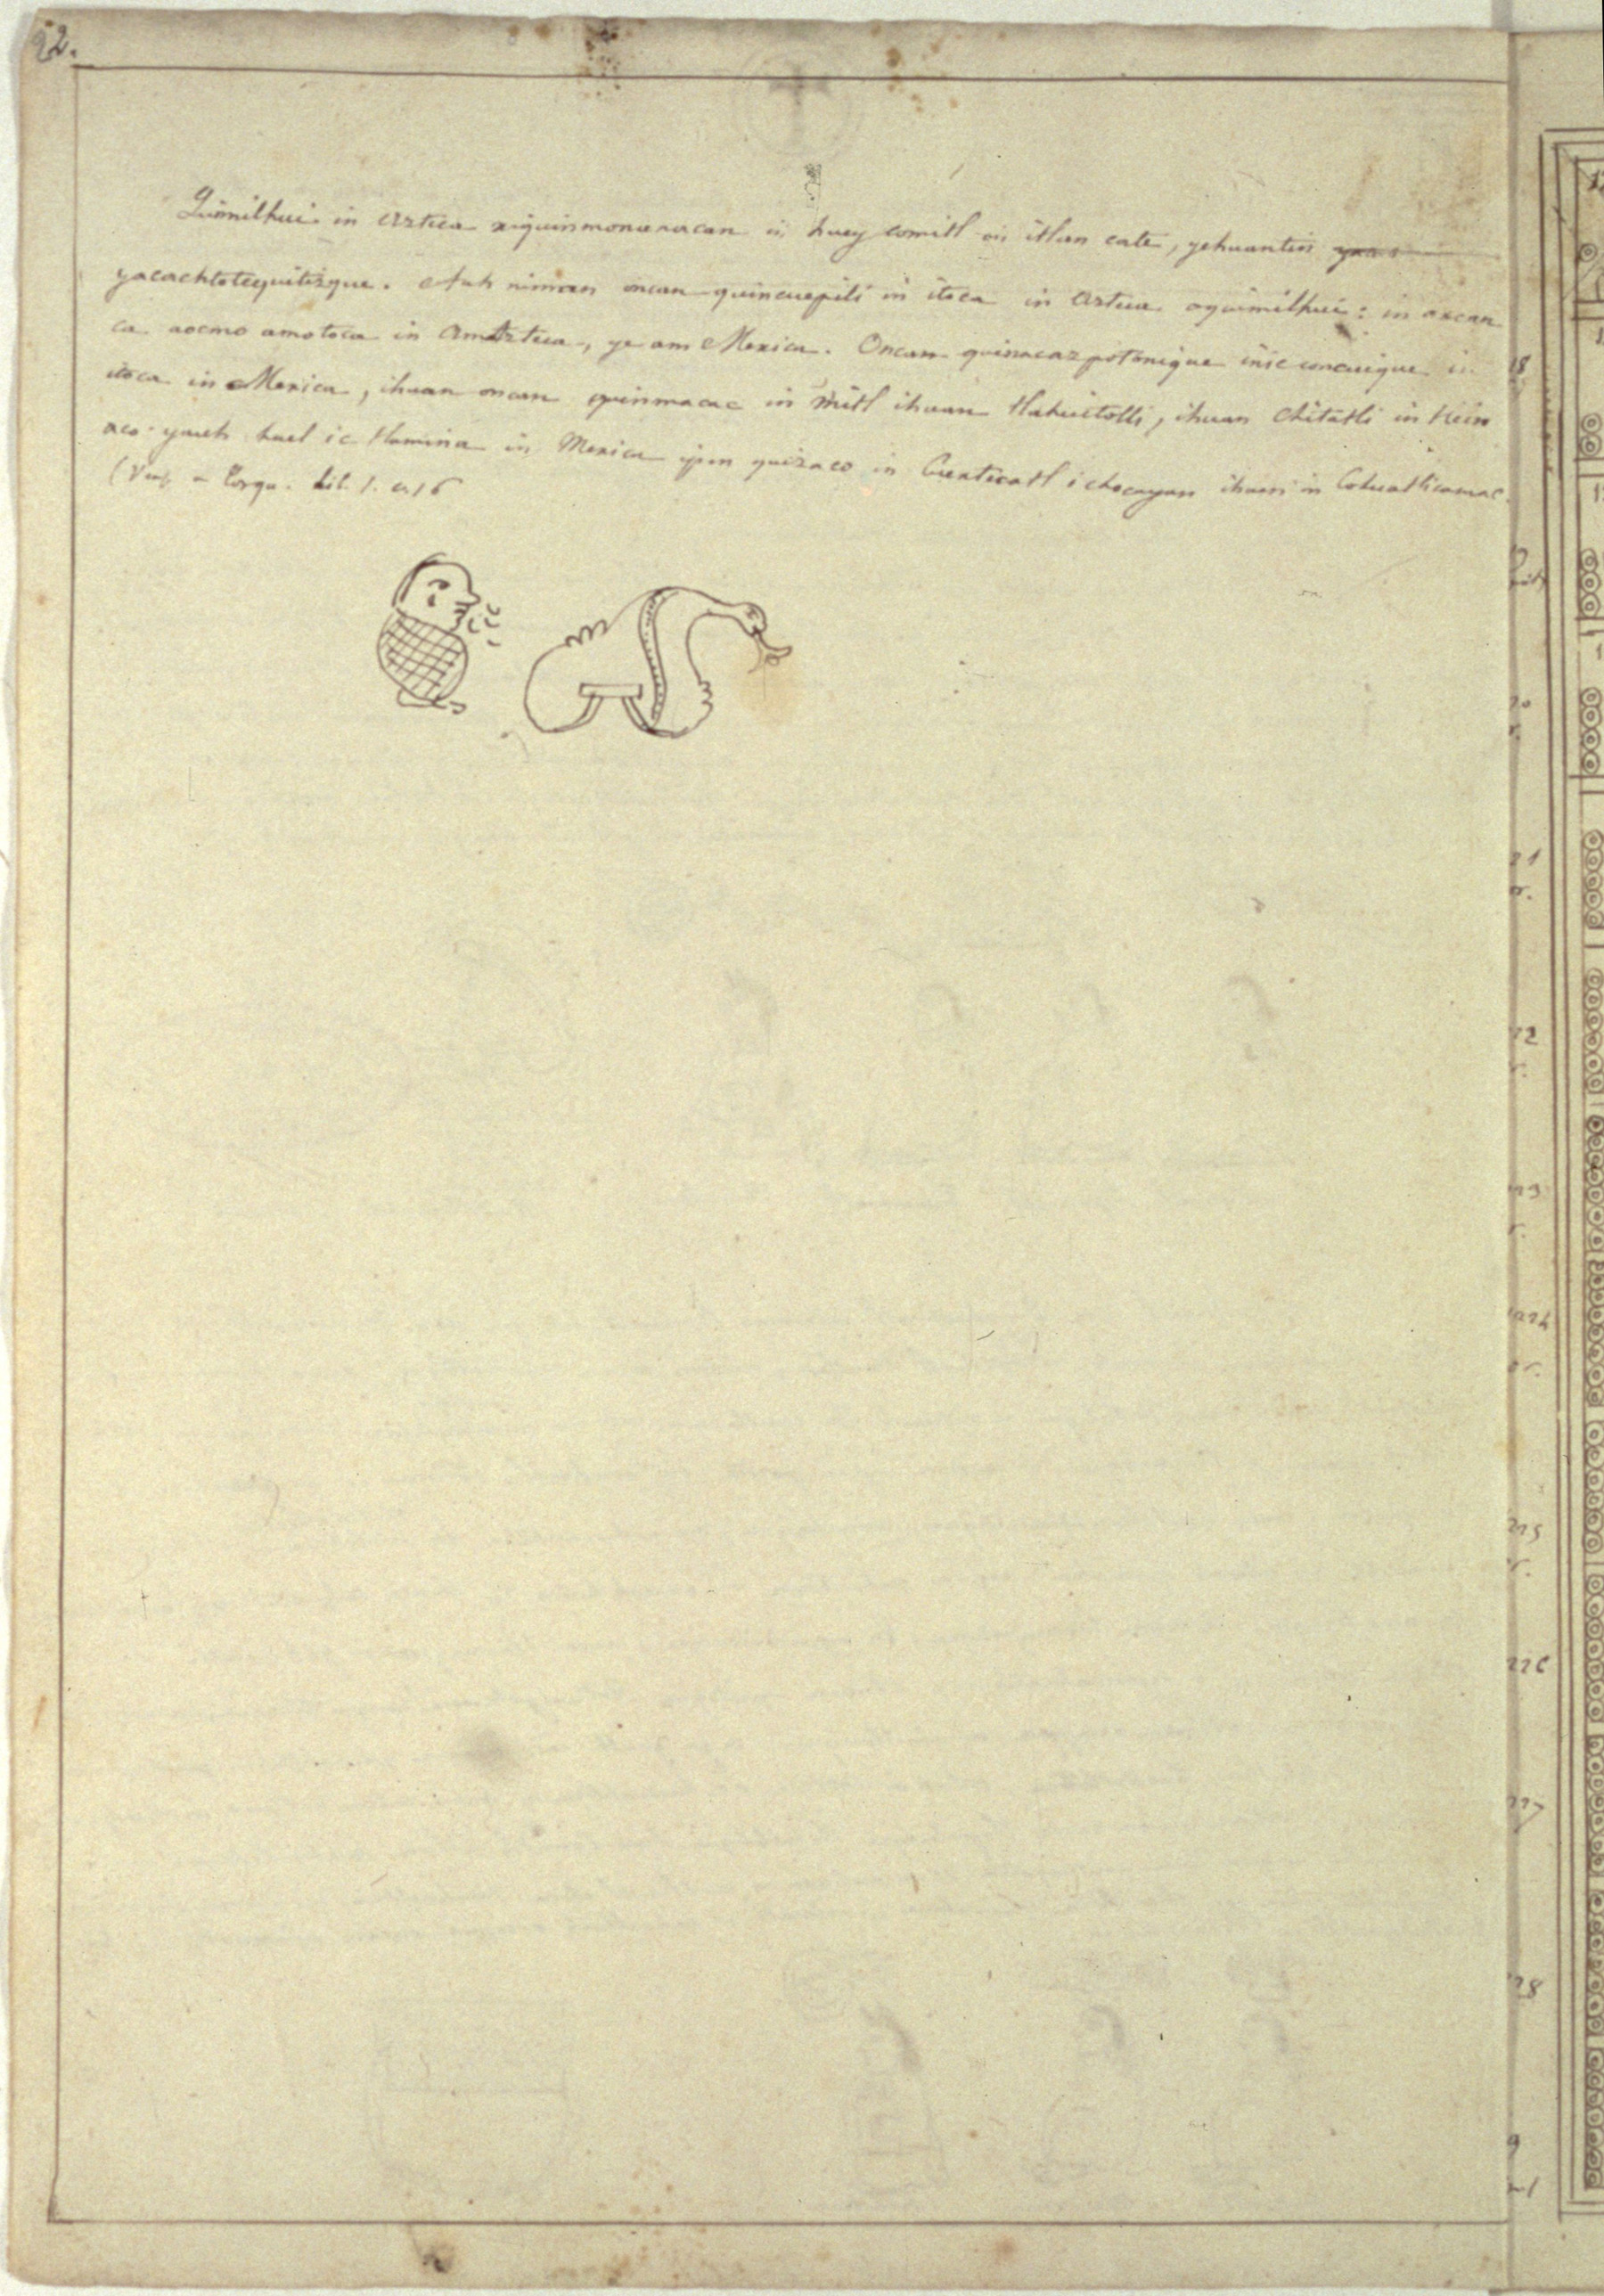 22.
Quimilhui in Azteca xiquinmonanacan in huey comitl in itlan cate, yehuantin
yacachtotequitizque. Auh niman oncan quincuepili in itoca in Azteca oquimilhui: in axcan
ca aocmo amotoca in Amazteca, ye am Mexica. Oncan quinacazpotonique inic concuique in
itoca in Mexica, ihuan oncan quinmacac in mitl ihuan tlahuitolli, ihuan chitatli in tlein
aco yauh huel ic tlamina in Mexica ipan quizaco in Cuextecatl ichocayan ihuan in Cohuatlicamac.
(Vease a Torqu. lib. 1. c. 16
18
20
21
22